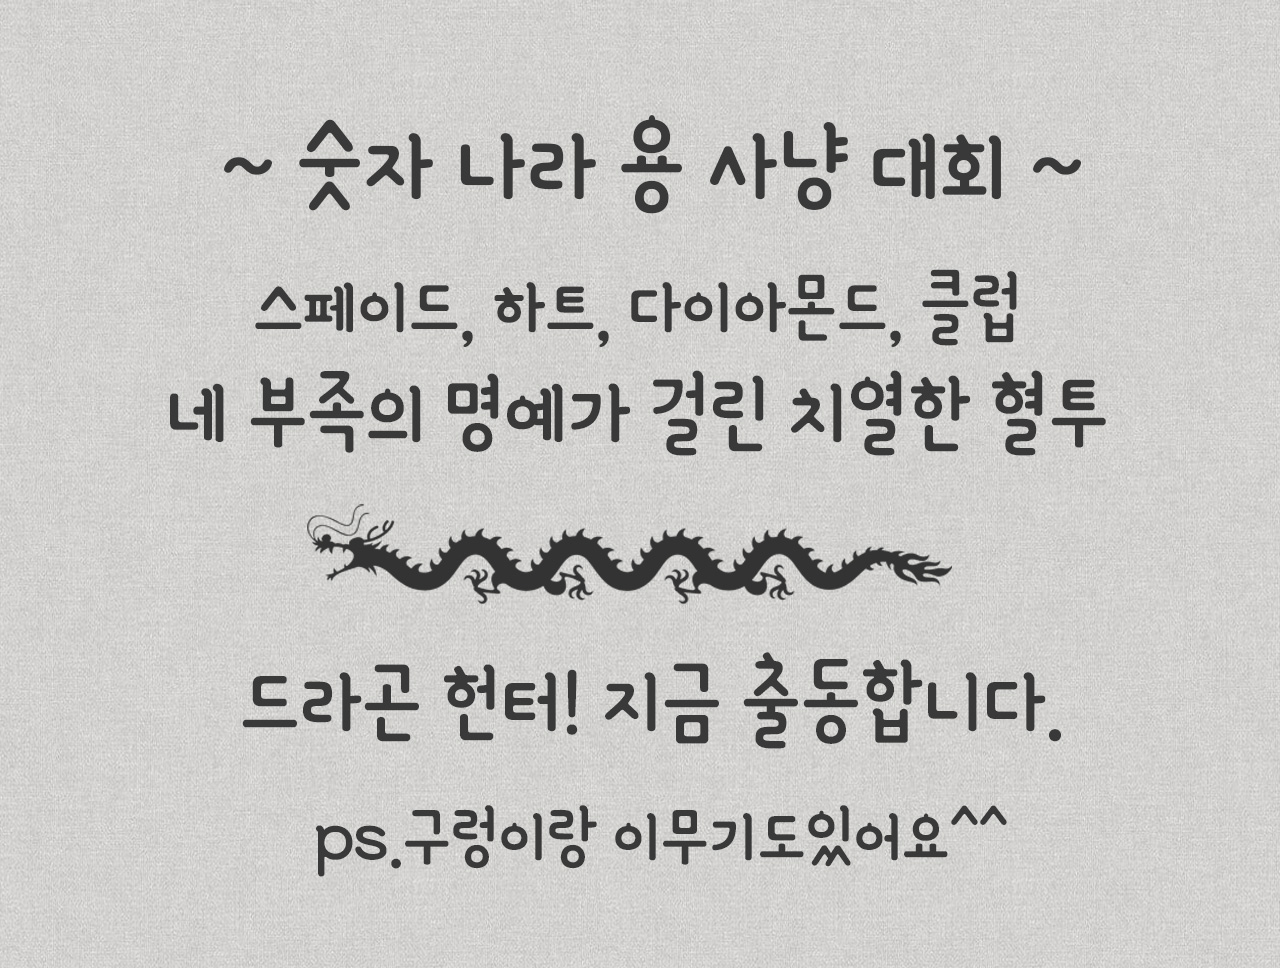 ~ 숫자 나라 용 사냥 대회 ~
스페이드, 하트, 다이아몬드, 클럽
네 부족의 명예가 걸린 치열한 혈투
드라곤 헌터! 지금 출동합니다.
ps.구렁이랑 이무기도있어요^^